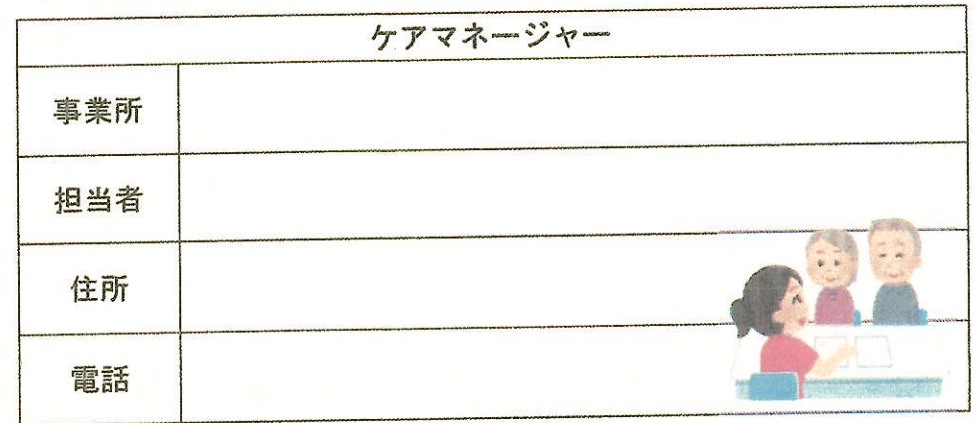 ケアマネージャー
事業所
担当者
住所
電話